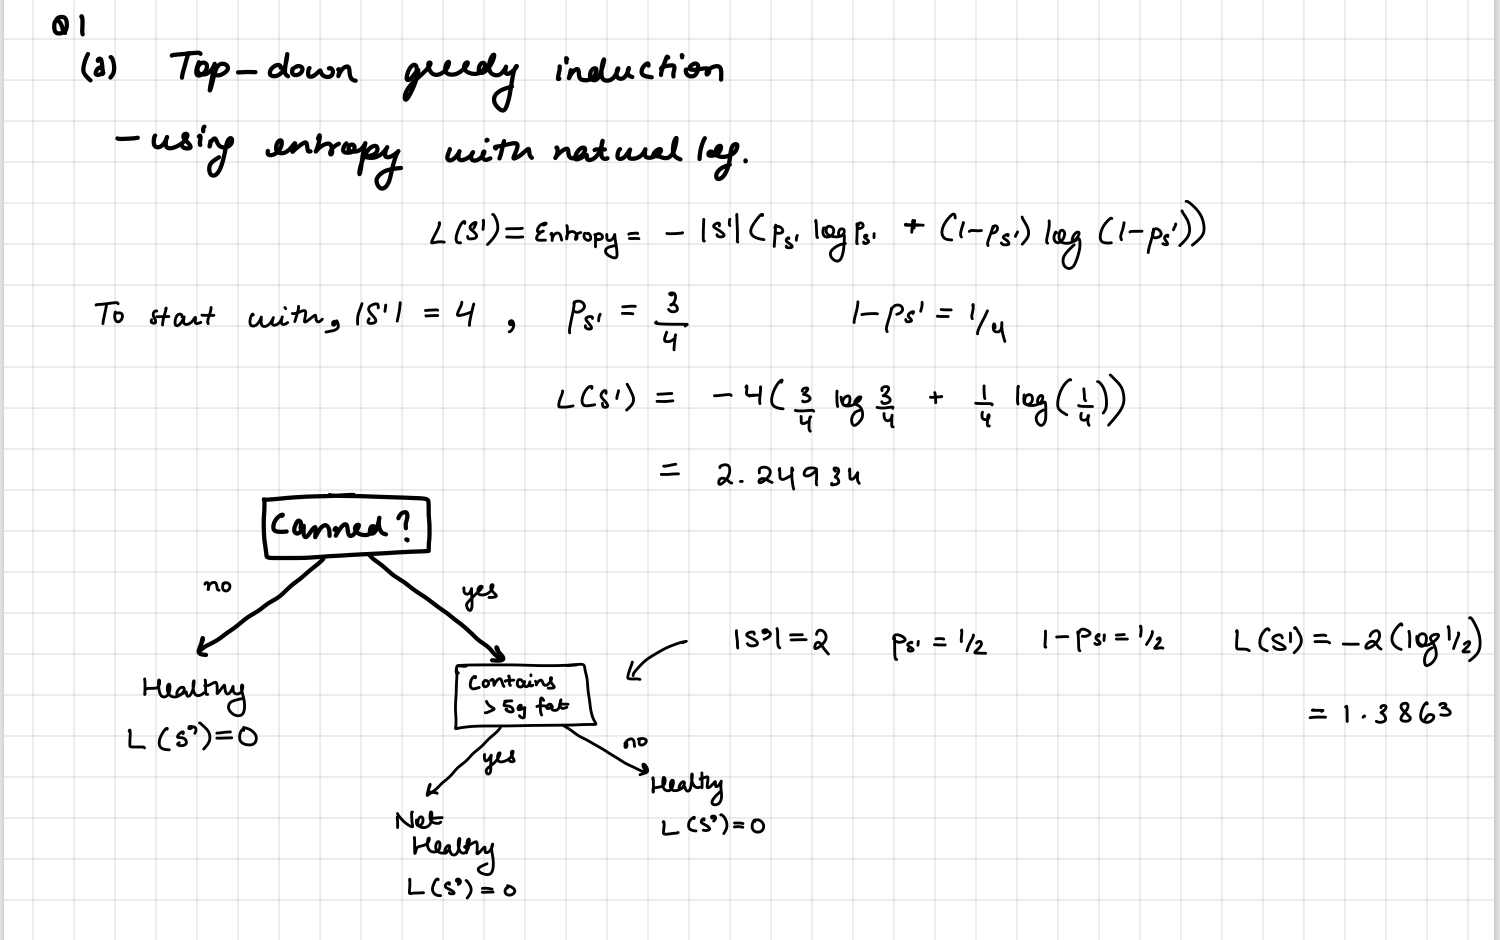 Q1
(a) Top-down greedy induction
- using entropy with natural log.
L(S') = Entropy = - |S'| (p_S' log p_S' + (1-p_S') log (1-p_S'))
To start with, |S'| = 4 , p_S' = 3/4 1-p_S' = 1/4
L(S') = -4(3/4 log 3/4 + 1/4 log(1/4))
= 2.24934
Canned?
no
yes
Healthy
L(S')=0
Contains
> 5g fat
|S'|=2 p_S' = 1/2 1-p_S' = 1/2 L(S') = -2(log 1/2)
= 1.3863
yes
no
Not
Healthy
L(S') = 0
Healthy
L(S')=0